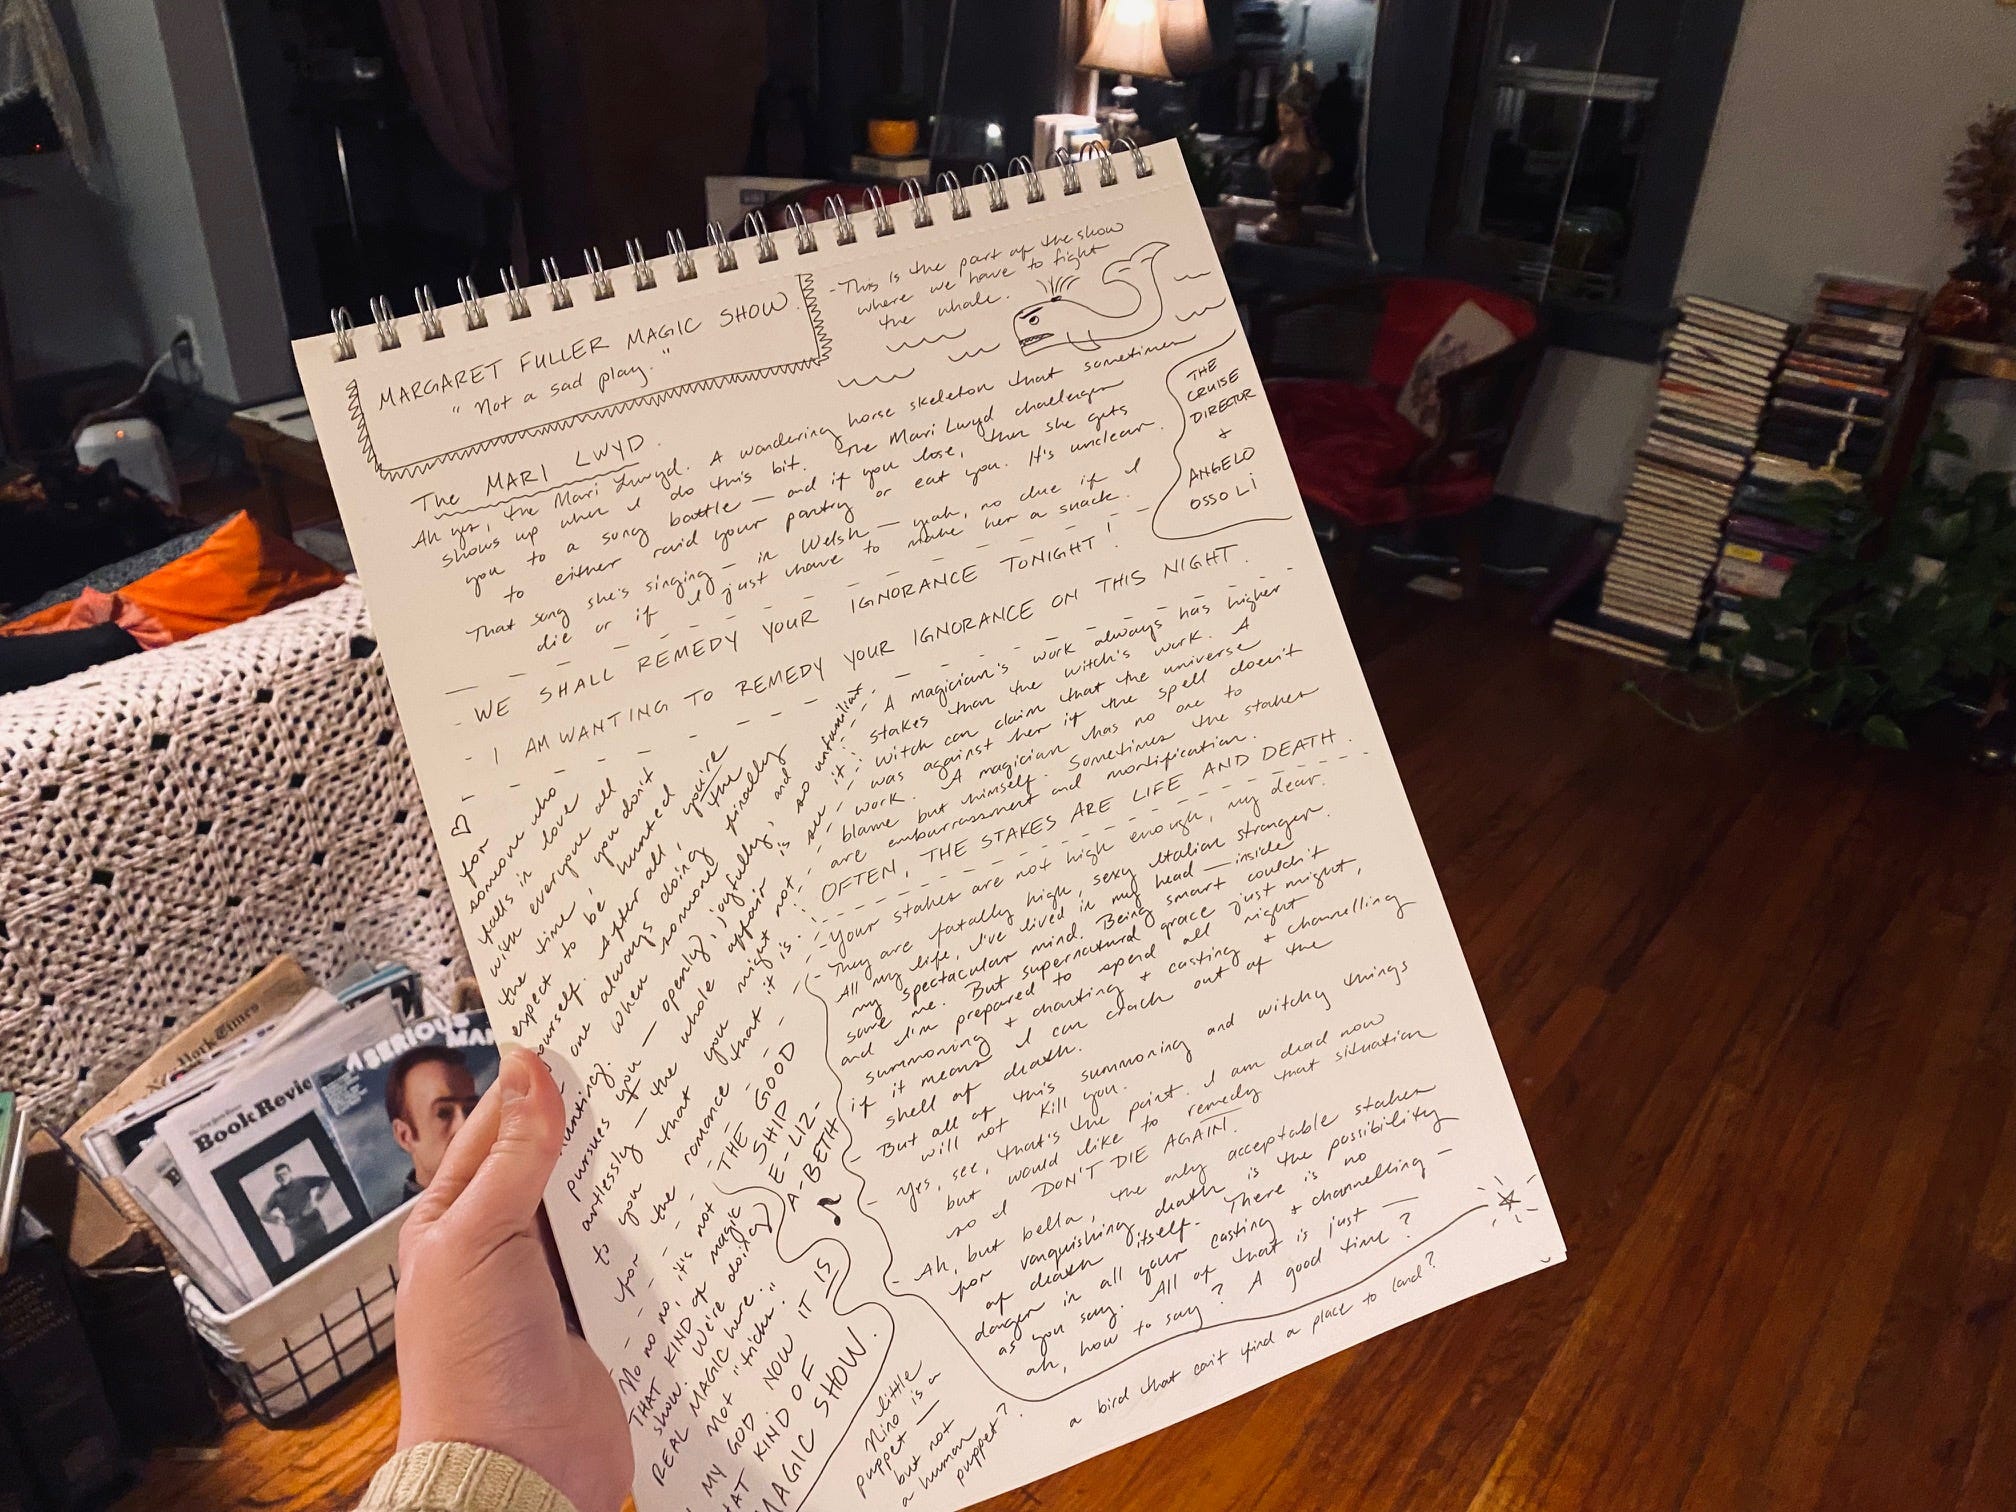 MARGARET FULLER MAGIC SHOW.
"Not a sad play."
- This is the part of the show
where we have to fight
the whale.
The MARI LWYD.
Ah yes, the Mari Lwyd. A wandering horse skeleton that sometimes
shows up when I do this bit. The Mari Lwyd challenges
you to a song battle — and if you lose, then she gets
to either raid your pantry or eat you. It's unclear.
That song she's singing — in Welsh — yeah, no clue if I
die or if I just have to make her a snack.
THE
CRUISE
DIRECTOR
+
ANGELO
OSSOLI
- WE SHALL REMEDY YOUR IGNORANCE TONIGHT!
- I AM WANTING TO REMEDY YOUR IGNORANCE ON THIS NIGHT.
for
someone who
falls in love
with everyone all
the time, you don't
expect to be hunted
yourself. After all, you're
one always doing the
hunting. When someone finally
pursues you — openly, joyfully, and
artlessly — the whole affair is so unfamiliar
to you that you might not see it
for the romance that it is.
- A magician's work always has higher
stakes than the witch's work. A
witch can claim that the universe
was against her if the spell doesn't
work. A magician has no one to
blame but himself. Sometimes the stakes
are embarrassment and mortification.
OFTEN, THE STAKES ARE LIFE AND DEATH.
- Your stakes are not high enough, my dear.
- They are fatally high, sexy Italian stranger.
All my life, I've lived in my head — inside
my spectacular mind. Being smart couldn't
save me. But supernatural grace just might,
and I'm prepared to spend all night
summoning + chanting + casting + channelling
if it means I can crack out of the
shell of death.
- But all of this summoning and witchy things
will not kill you.
- Yes, see, that's the point. I am dead now
but would like to remedy that situation
so I DON'T DIE AGAIN.
- Ah, but bella, the only acceptable stakes
for vanquishing death is the possibility
of death itself. There is no
danger in all your casting + channelling —
as you say. All of that is just —
ah, how to say? A good time?
THE GOOD
SHIP
E-LIZ-
A-BETH
No no no, it's not
THAT KIND of magic
show. We're doing
REAL MAGIC here.
Not "tricks."
MY GOD NOW IT IS
THAT KIND OF
MAGIC SHOW.
little
Nino is a
puppet —
but not
a human
puppet?
a bird that can't find a place to land?
New York Times
Book Review
A SERIOUS
MAN